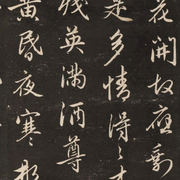 花開故應
是多情得〻
英滿酒尊
黃昏夜寒